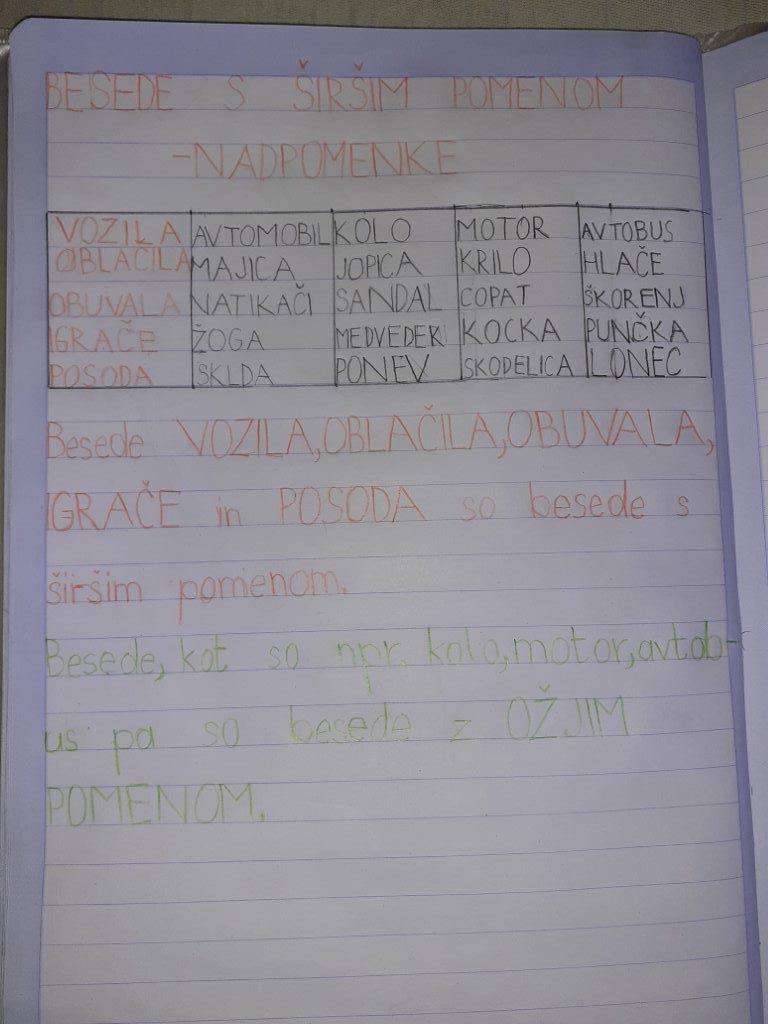 BESEDE S ŠIRŠIM POMENOM
-NADPOMENKE
VOZILA AVTOMOBIL KOLO MOTOR AVTOBUS
OBLAČILA MAJICA JOPICA KRILO HLAČE
OBUVALA NATIKAČI SANDAL COPAT ŠKORENJ
IGRAČE ŽOGA MEDVEDEK KOCKA PUNČKA
POSODA SKLDA PONEV SKODELICA LONEC
Besede VOZILA, OBLAČILA, OBUVALA,
IGRAČE in POSODA so besede s
širšim pomenom.
Besede, kot so npr. kolo, motor, avtob-
us pa so besede z OŽJIM
POMENOM.